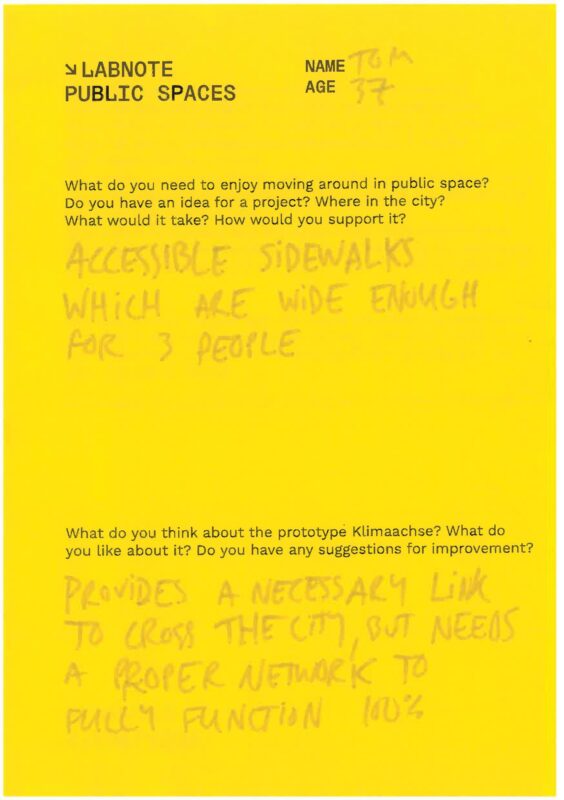 ↘ LABNOTE
PUBLIC SPACES
NAME TOM
AGE 37
What do you need to enjoy moving around in public space?
Do you have an idea for a project? Where in the city?
What would it take? How would you support it?
ACCESSIBLE SIDEWALKS
WHICH ARE WIDE ENOUGH
FOR 3 PEOPLE
What do you think about the prototype Klimaachse? What do
you like about it? Do you have any suggestions for improvement?
PROVIDES A NECESSARY LINK
TO CROSS THE CITY, BUT NEEDS
A PROPER NETWORK TO
FULLY FUNCTION 100%